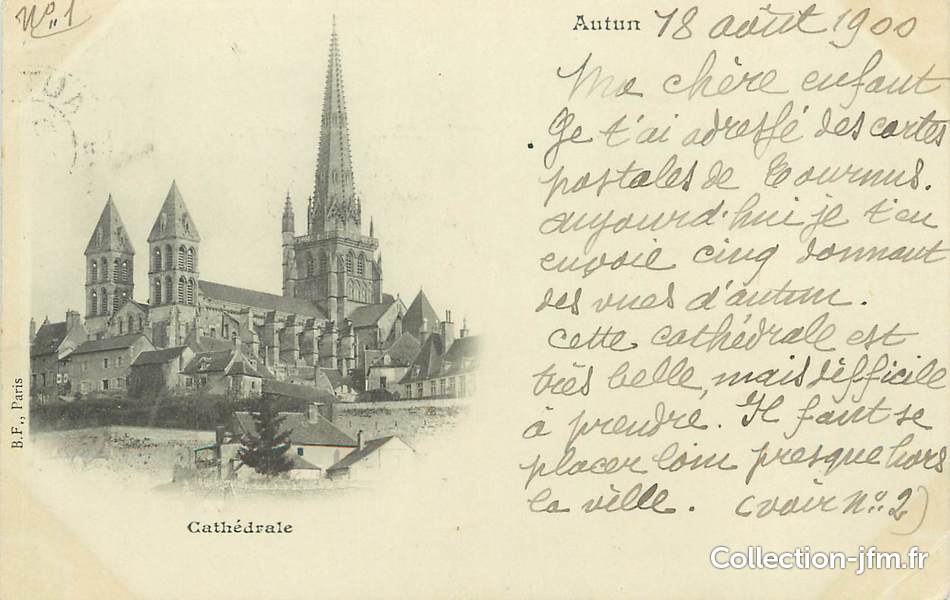 N° 1
Autun 18 août 1900
Ma chère enfant
Je t'ai adressé des cartes
postales de Tournus.
aujourd'hui je t'en
envoie cinq donnant
des vues d'autun.
Cette cathédrale est
très belle, mais difficile
à prendre. Il faut se
placer loin presque hors
la ville. (voir N° 2)
B.F., Paris
Cathédrale
Collection-jfm.fr